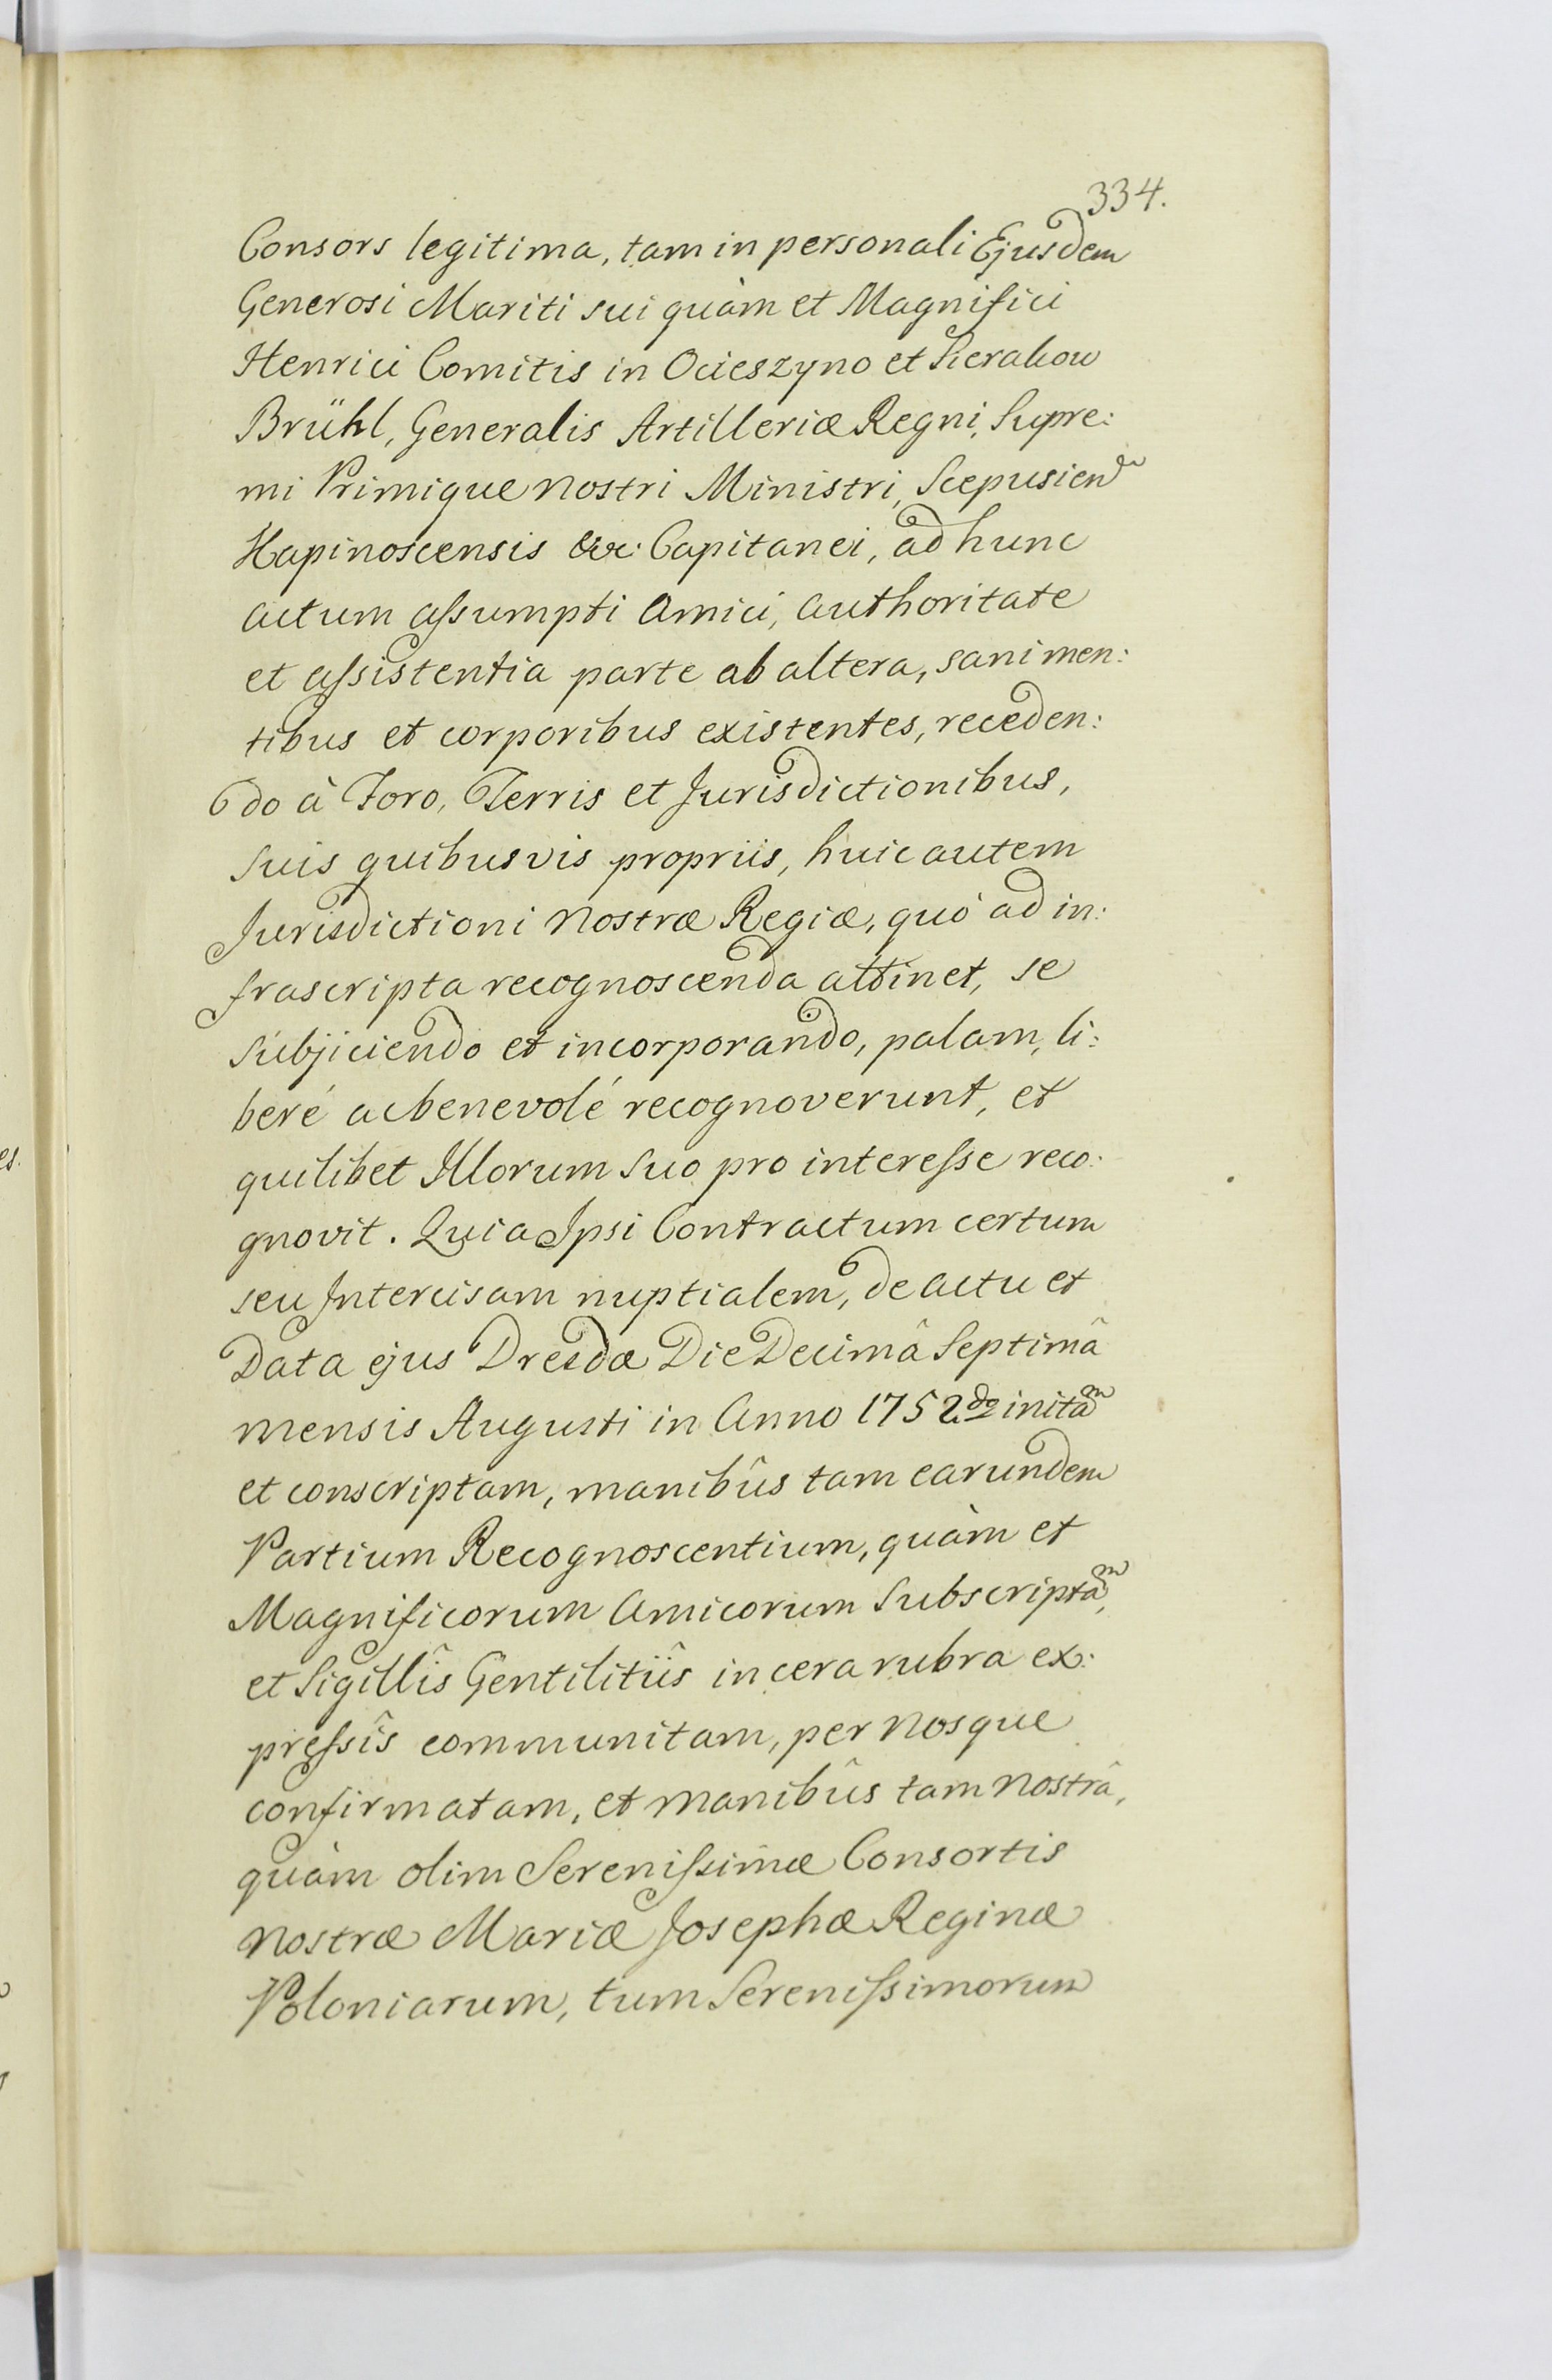 334.
Consors legitima, tam in personali Ejusdem
Generosi Mariti sui quàm et Magnifici
Henrici Comitis in Ocieszyno et Sierakow
Brühl, Generalis Artilleriæ Regni, Supre:
mi Primique nostri Ministri, Scepusien
Hapinoscensis &c: Capitanei, ad hunc
actum assumpti Amici, authoritate
et assistentia parte ab altera, sani men:
tibus et corporibus existentes, receden:
do à Foro, Terris et Jurisdictionibus,
suis quibusvis propriis, huic autem
Jurisdictioni nostræ Regiæ, quò ad in:
frascripta recognoscenda attinet, se
subjiciendo et incorporando, palam, li:
beré ac benevolé recognoverunt, et
quilibet Illorum suo pro interesse reco:
gnovit. Quia Ipsi Contractum certum
seu Intercisam nuptialem, de actu et
Data ejus Dresdæ Die Decimâ Septimâ
mensis Augusti in Anno 1752do initam
et conscriptam, manibûs tam earundem
Partium Recognoscentium, quàm et
Magnificorum Amicorum subscriptam,
et Sigillîs Gentilitiîs in cera rubra ex:
pressîs communitam, per nosque
confirmatam, et manibûs tam nostrâ,
quàm olim Serenissimæ Consortis
nostræ Mariæ Josephæ Reginæ
Poloniarum, tum Serenissimorum
es.